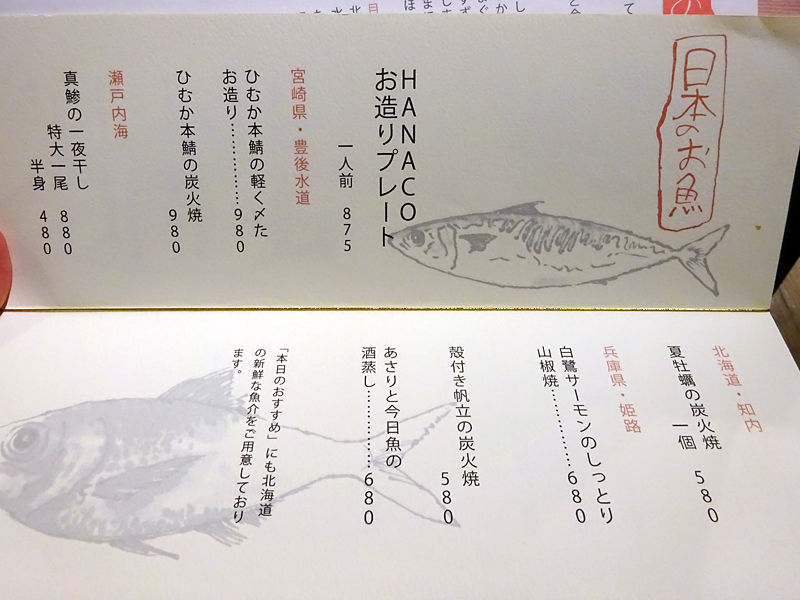 日本のお魚
HANACO
お造りプレート
一人前 875
宮崎県・豊後水道
ひむか本鯖の軽く〆た
お造り……………980
ひむか本鯖の炭火焼
980
瀬戸内海
真鯵の一夜干し
特大一尾 880
半身 480
北海道・知内
夏牡蠣の炭火焼
一個 580
兵庫県・姫路
白鷺サーモンのしっとり
山椒焼……………680
殻付き帆立の炭火焼
580
あさりと今日魚の
酒蒸し……………680
「本日のおすすめ」にも北海道
の新鮮な魚介をご用意しており
ます。